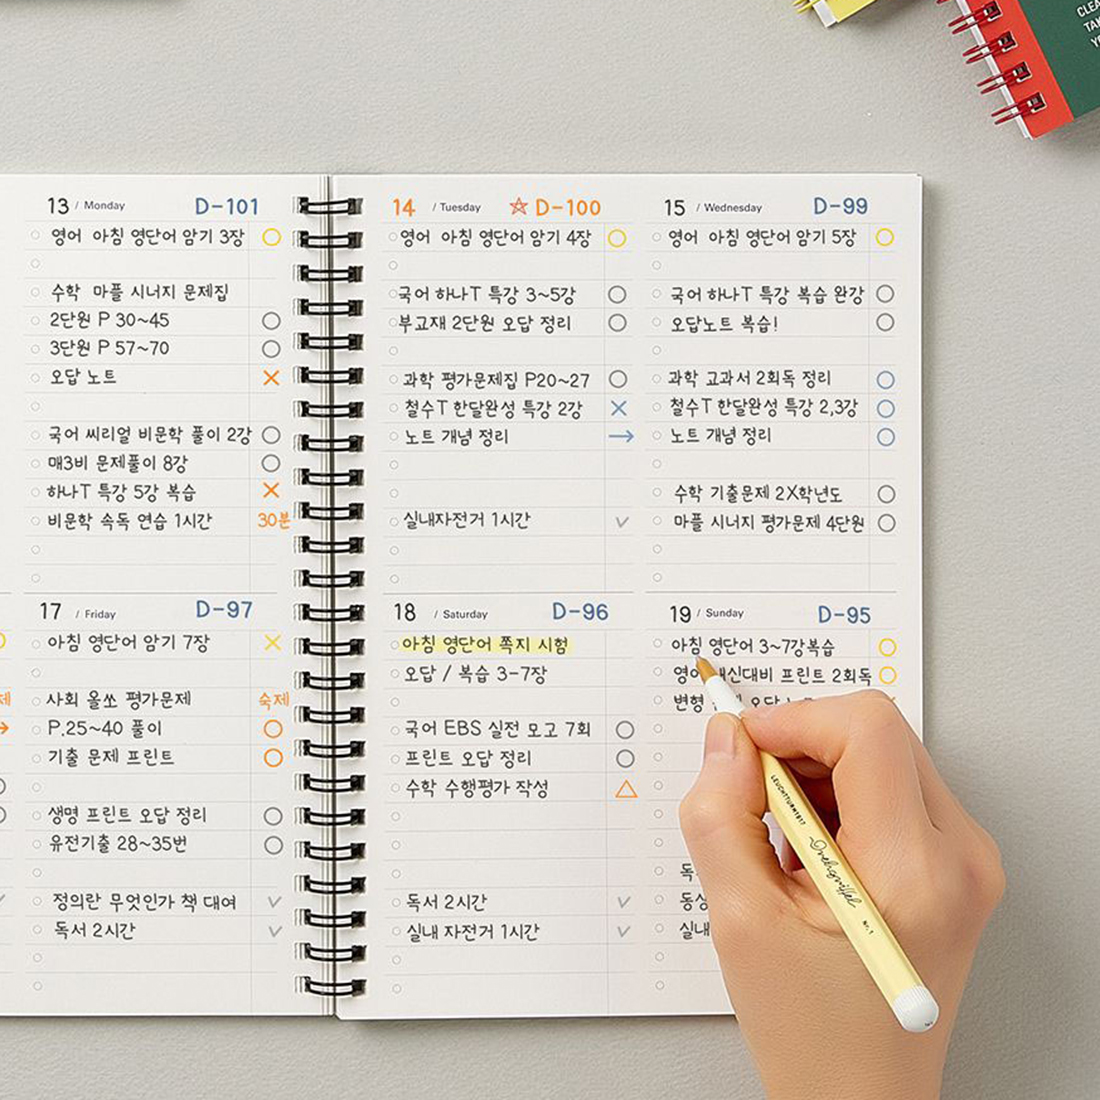 CLEA
TAK
YE
13 / Monday D-101
영어 아침 영단어 암기 3장
수학 마플 시너지 문제집
2단원 P 30~45
3단원 P 57~70
오답 노트
국어 씨리얼 비문학 풀이 2강
매3비 문제풀이 8강
하나T 특강 5강 복습
비문학 속독 연습 1시간 30분
14 / Tuesday D-100
영어 아침 영단어 암기 4장
국어 하나T 특강 3~5강
부교재 2단원 오답 정리
과학 평가문제집 P20~27
철수T 한달완성 특강 2강
노트 개념 정리 →
실내자전거 1시간
15 / Wednesday D-99
영어 아침 영단어 암기 5장
국어 하나T 특강 복습 완강
오답노트 복습!
과학 교과서 2회독 정리
철수T 한달완성 특강 2,3강
노트 개념 정리
수학 기출문제 2X학년도
마플 시너지 평가문제 4단원
17 / Friday D-97
아침 영단어 암기 7장
사회 올쏘 평가문제 숙제
P.25~40 풀이
기출 문제 프린트
생명 프린트 오답 정리
유전기출 28~35번
정의란 무엇인가 책 대여
독서 2시간
18 / Saturday D-96
아침 영단어 쪽지 시험
오답 / 복습 3-7장
국어 EBS 실전 모고 7회
프린트 오답 정리
수학 수행평가 작성
독서 2시간
실내 자전거 1시간
19 / Sunday D-95
아침 영단어 3~7강복습
프린트 2회독
변형
독
실내
LEUCHTTURM1917
Drehgriffel
Nr.1